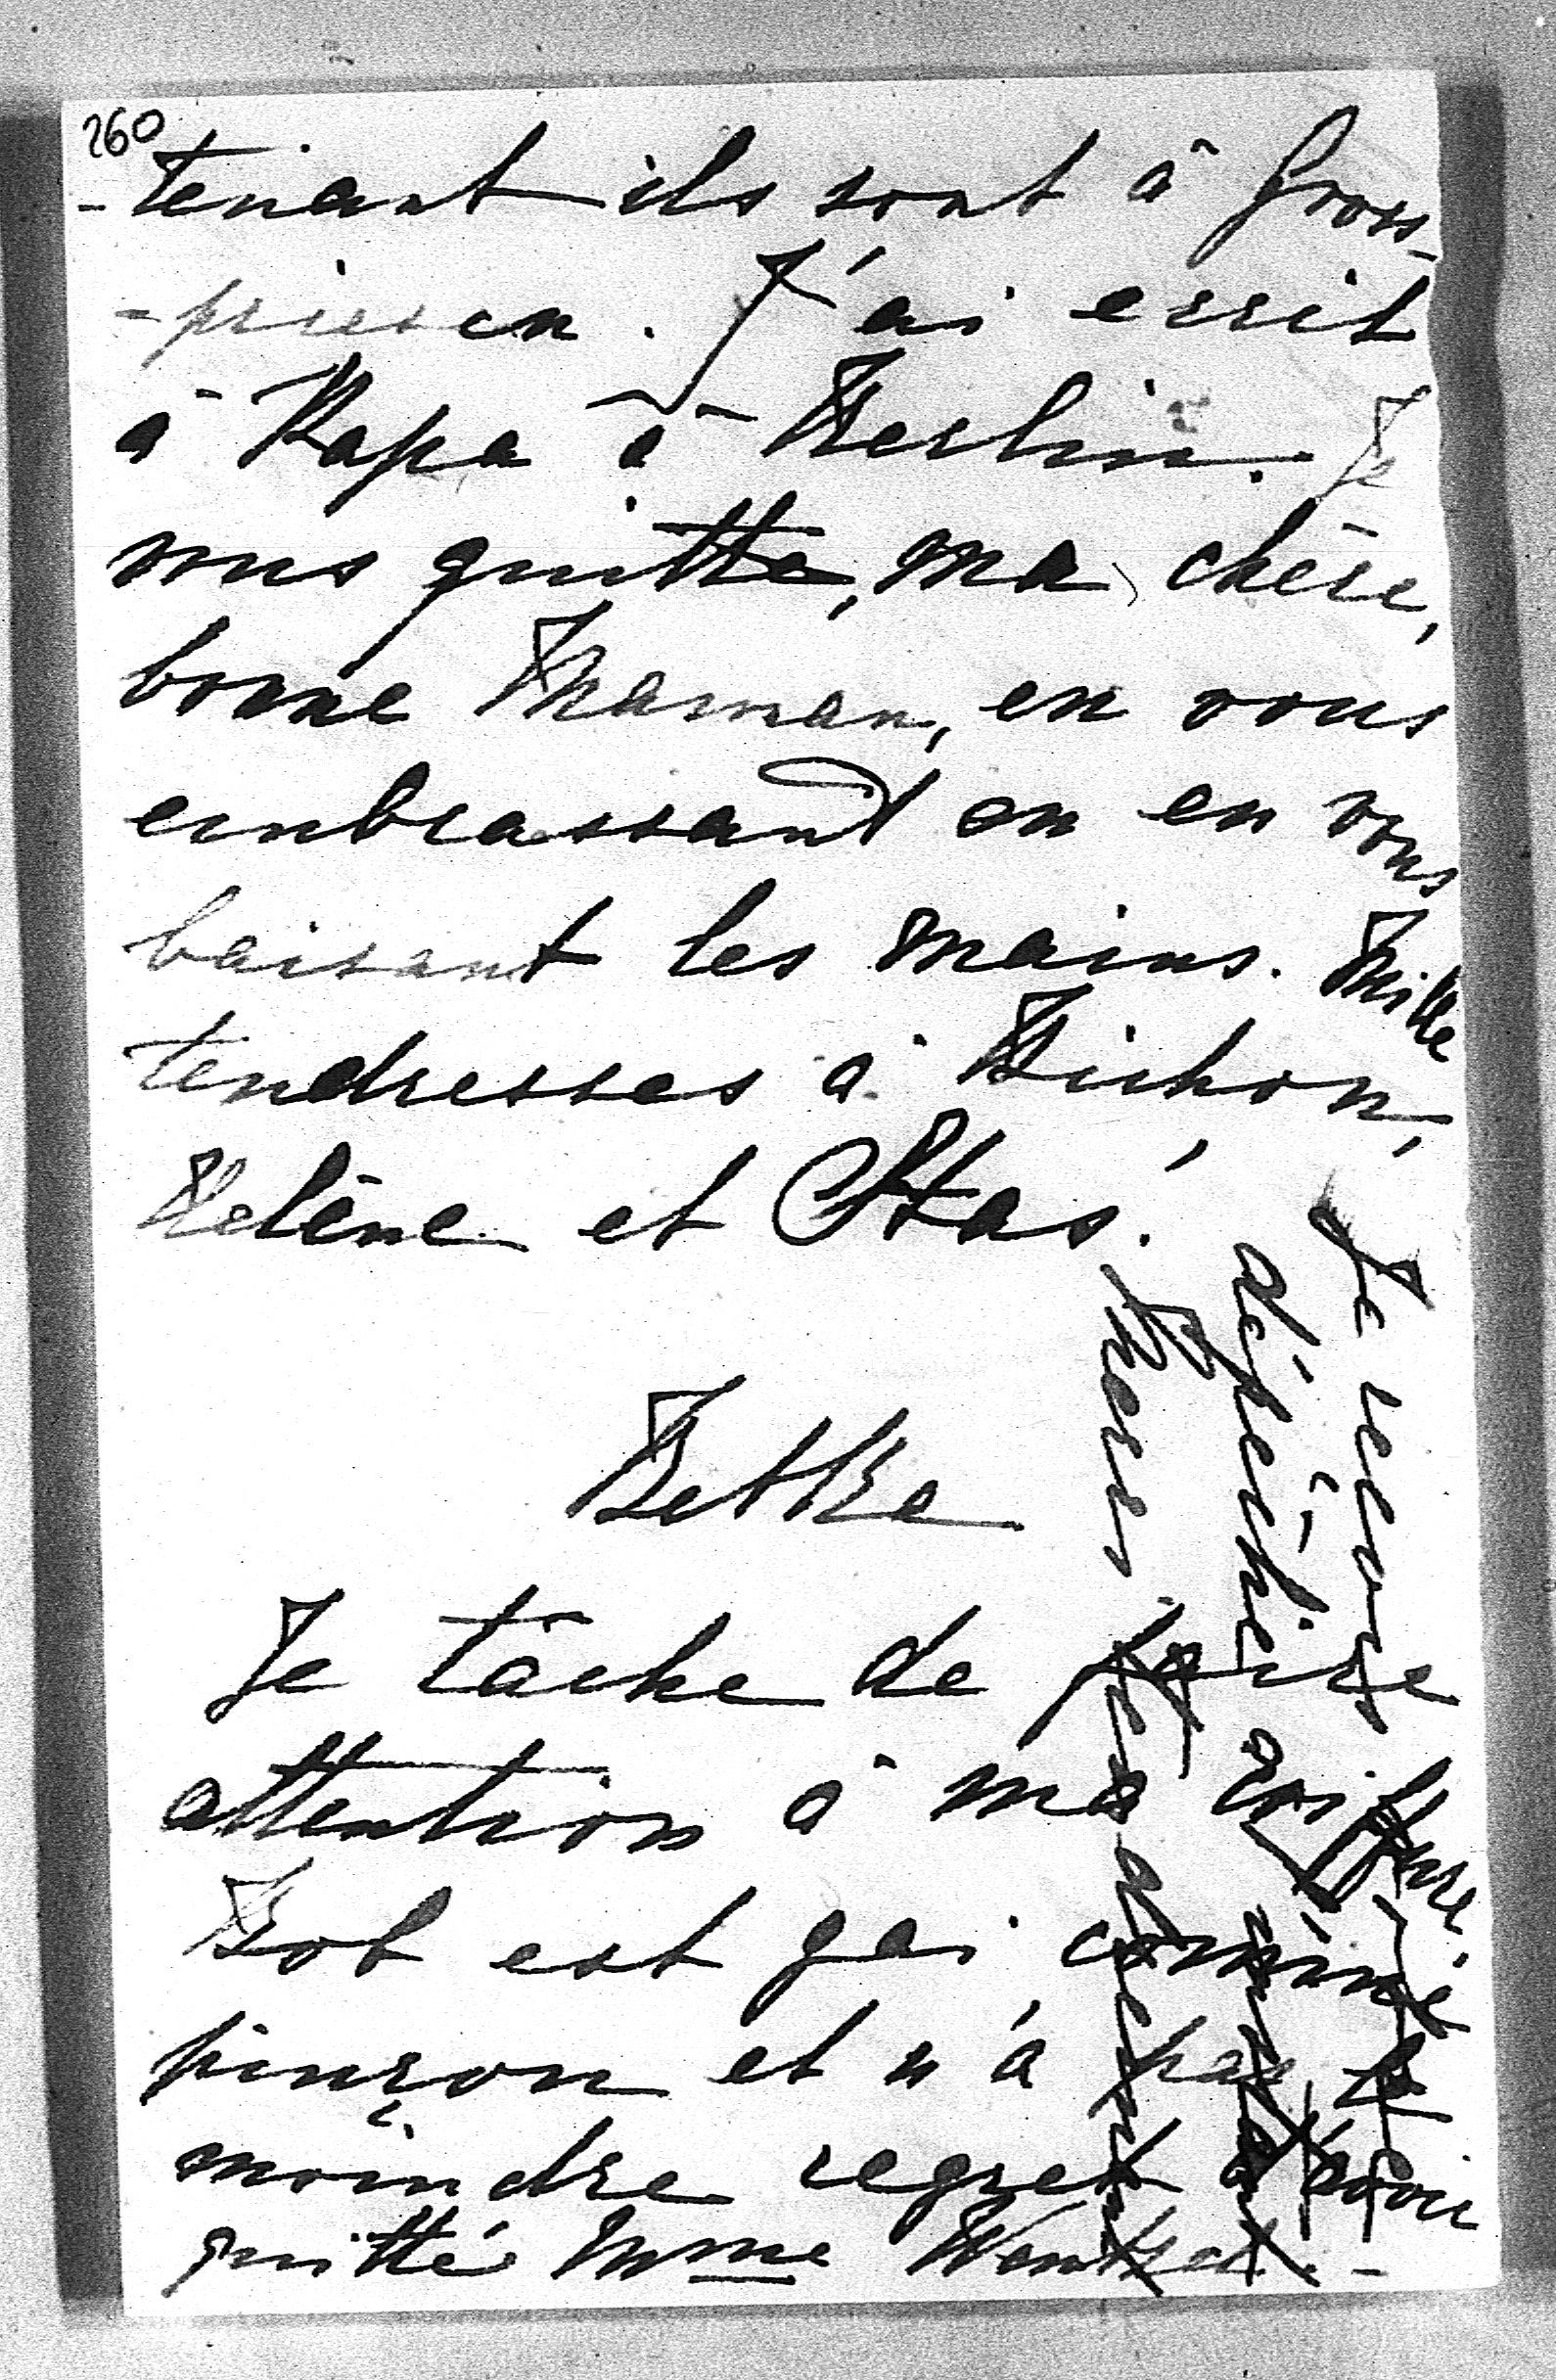 260
-tenant ils sont à Gross-
-priesen. J'ai ecrit
à Papa à Berlin. Je
vous quitte, ma chère,
bonne Maman, en vous
embrassant en en vous
baisant les mains. Mille
tendresses à Bichon,
Helène et Staś.
Betka
Je tâche de faire
attention à ma coiffure.
Bob est gai comme
pinçon et n'a pas le
moindre regret d'avoir
quitté Mme Wentzel. -
Je
dépêche